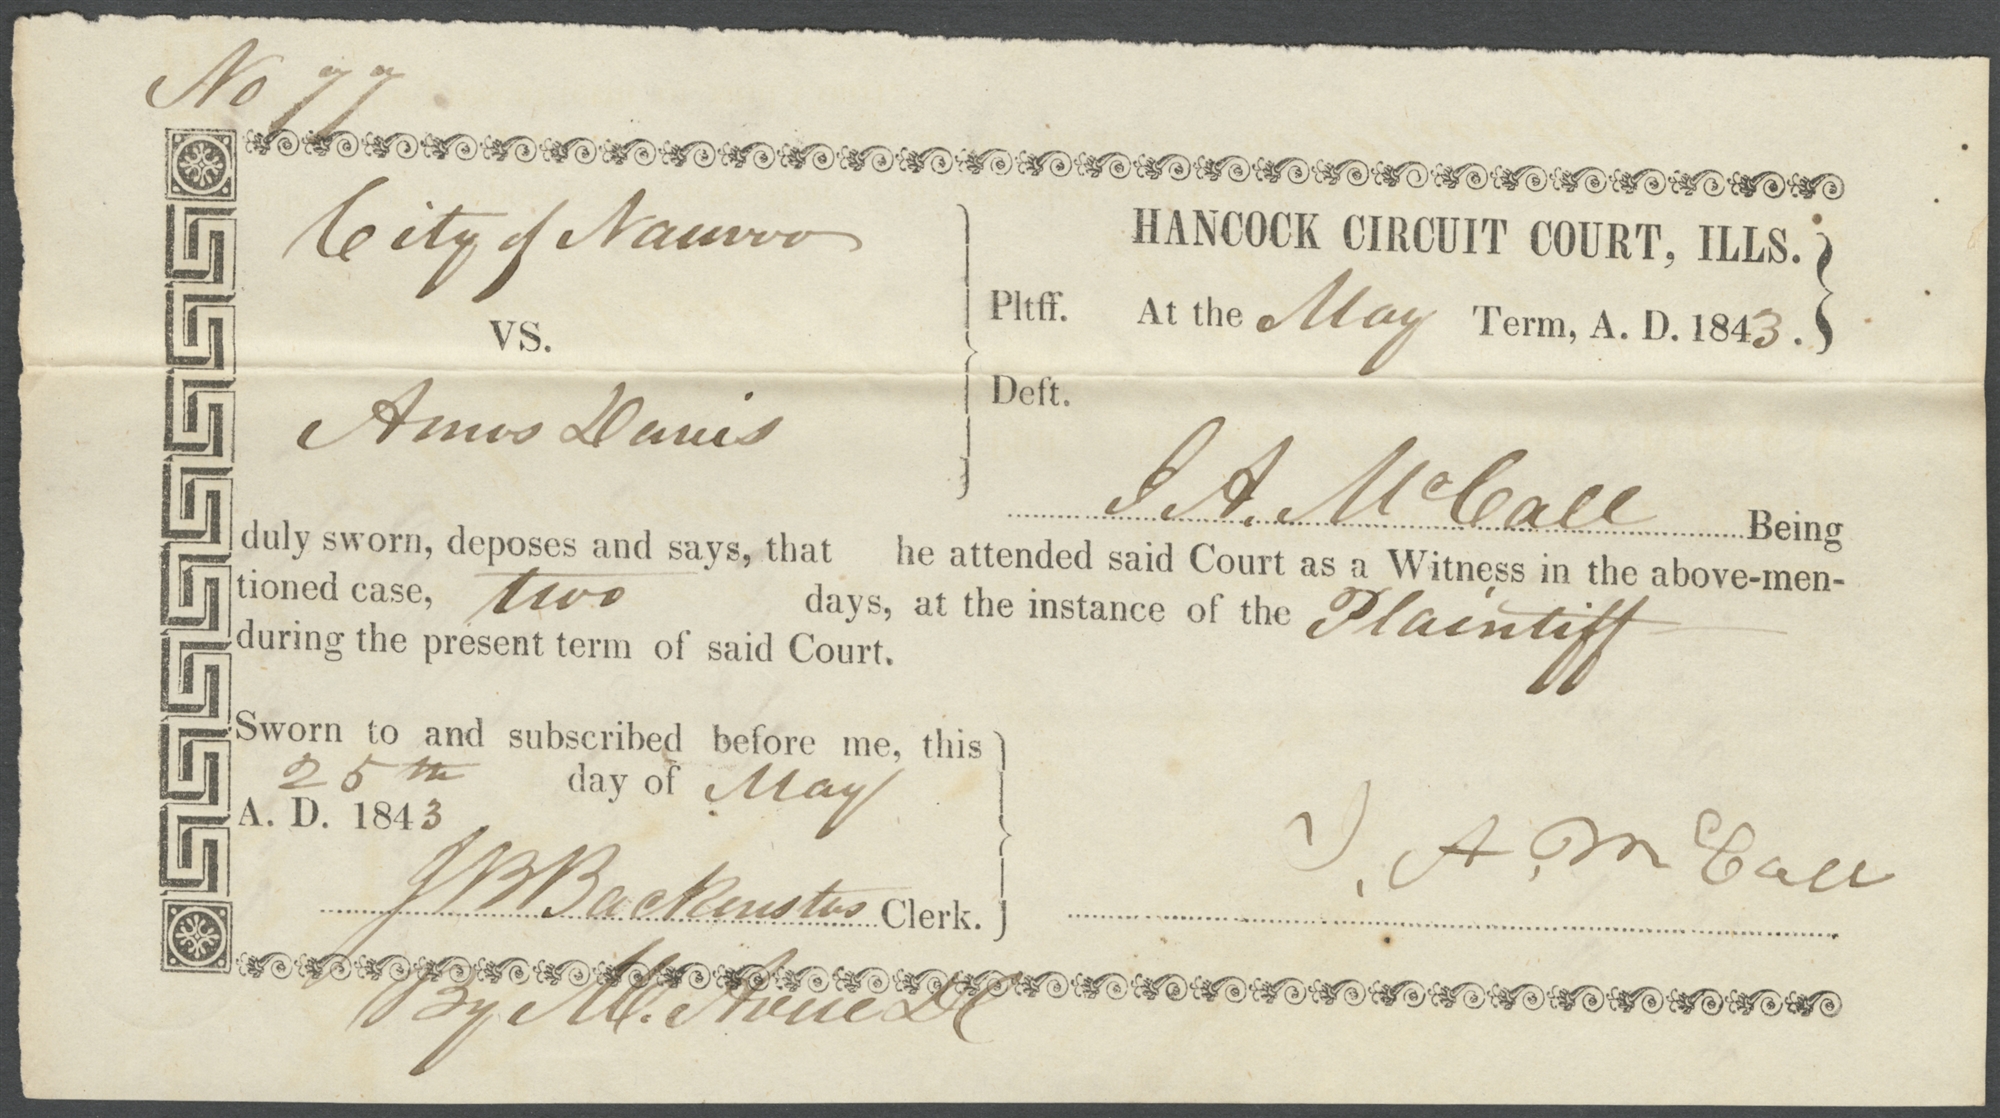 No 77
City of Nauvoo
VS.
Amos Davis
Pltff.
Deft.
HANCOCK CIRCUIT COURT, ILLS.
At the May Term, A. D. 1843.
J A. McCall Being
duly sworn, deposes and says, that he attended said Court as a Witness in the above-men-
tioned case, two days, at the instance of the Plaintiff
during the present term of said Court.
Sworn to and subscribed before me, this
25th day of May
A. D. 1843
J B Backenstos Clerk.
By M. DC
J. A. McCall